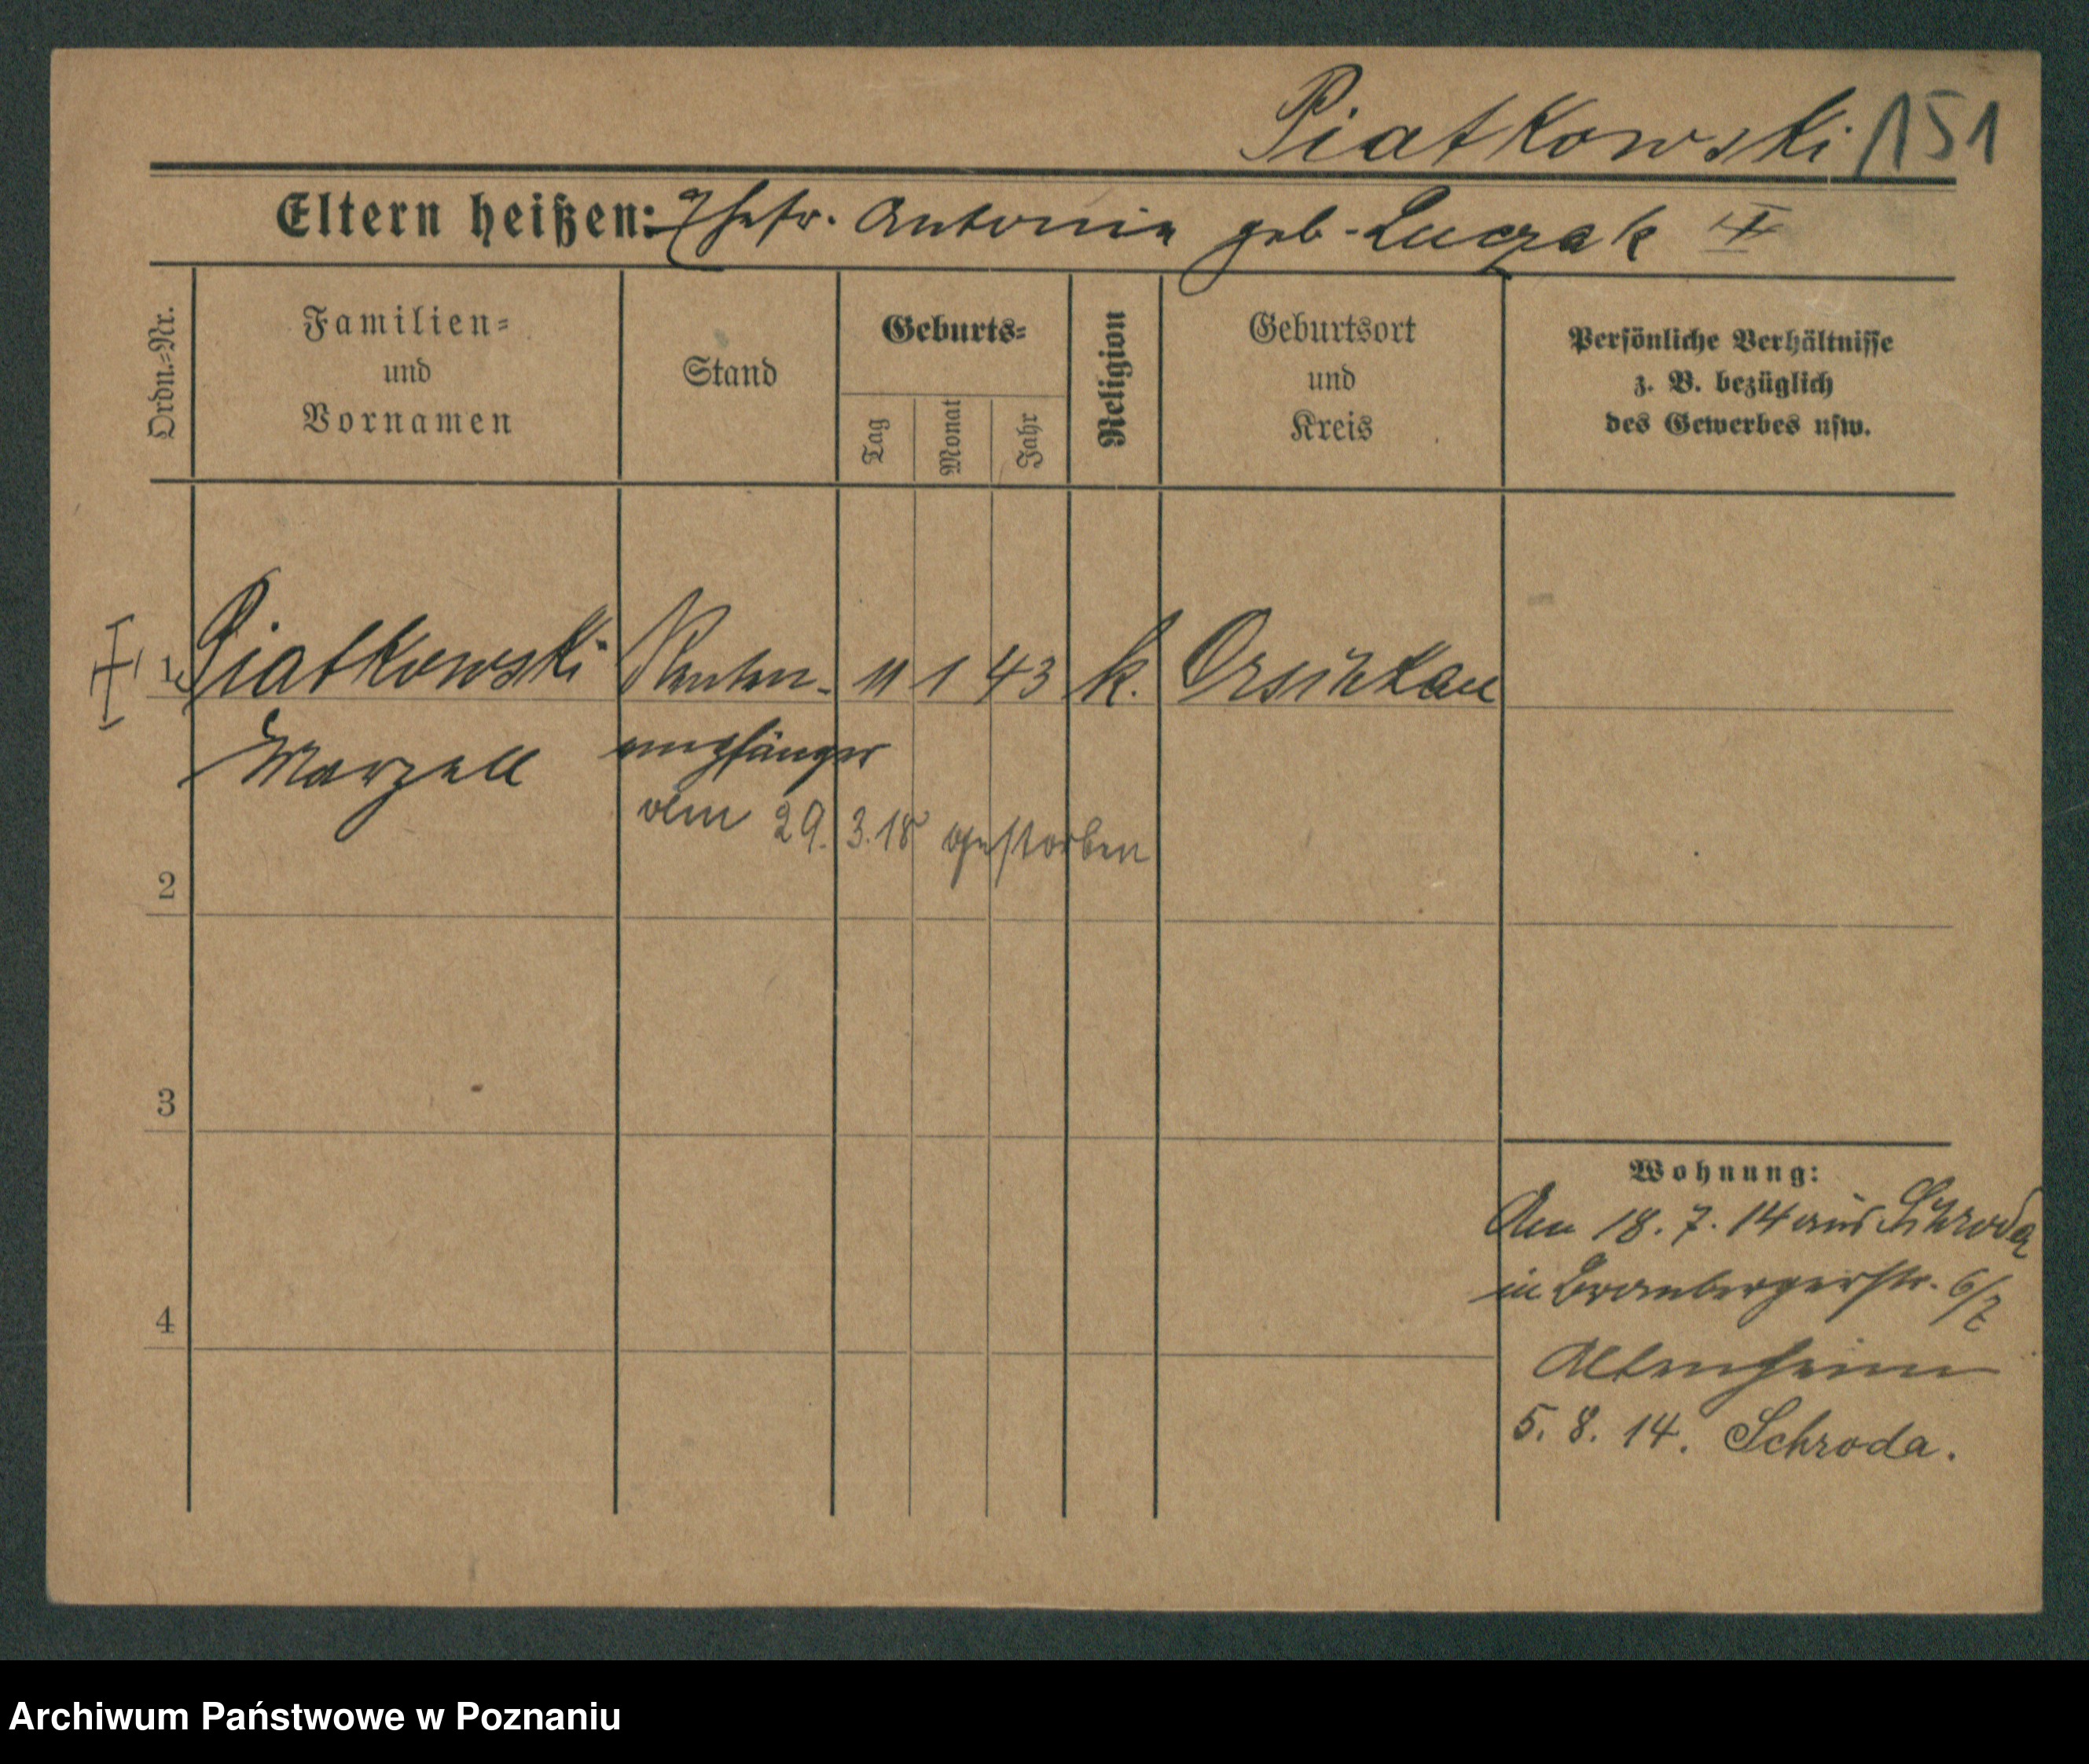 Piatkowski 151
Eltern heißen: Ehefr. Antonie geb. Luczak
Ordn.=Nr.
Familien=
und
Vornamen
Stand
Geburts=
Tag
Monat
Jahr
Religion
Geburtsort
und
Kreis
Persönliche Verhältnisse
z. B. bezüglich
des Gewerbes usw.
1 Piatkowski Renten- 11 1 43 k.
Marzell empfänger
29.3.18 gestorben
2
3
4
Wohnung:
Am 18.7.14 aus Schroda
in Brombergerstr. 6/7
Altenheim
5.8.14. Schroda.
Archiwum Państwowe w Poznaniu